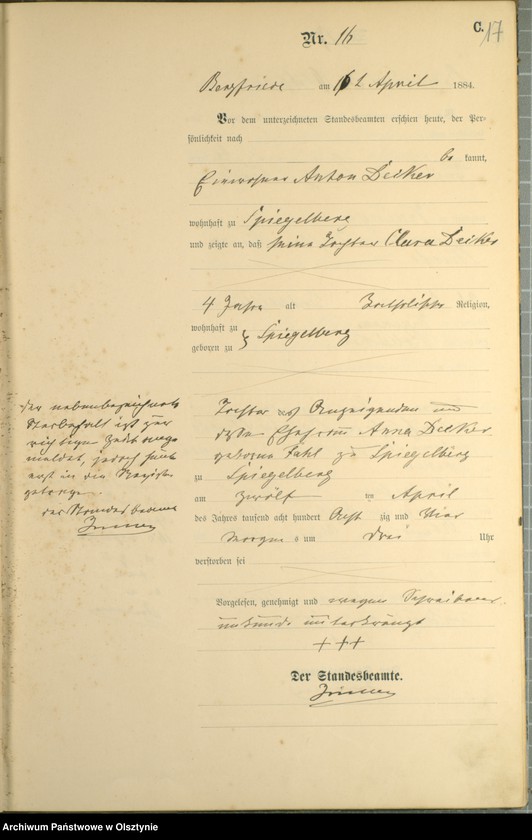 C.
17
Nr. 16
am April 1884.
Vor dem unterzeichneten Standesbeamten erschien heute, der Per-
sönlichkeit nach
be kannt,
Einwohner Anton Decker
wohnhaft zu Spiegelberg
und zeigte an, daß seine Tochter Clara Decker
4 Jahre alt Katholischer Religion,
wohnhaft zu
geboren zu } Spiegelberg
Tochter des Anzeigenden und
Ehefrau Anna Decker
geborene zu Spiegelberg
zu Spiegelberg
am zwölf ten April
des Jahres tausend acht hundert Acht zig und Vier
Morgen s um drei Uhr
verstorben sei
Der nebenbezeichnete
Sterbefall ist zur
richtigen Zeit ange
meldet, jedoch
erst in die Register
getragen.
Der Standesbeamte
Vorgelesen, genehmigt und wegen Schreibens
unkunde unterkreuzt
+++
Der Standesbeamte.
Archiwum Państwowe w Olsztynie